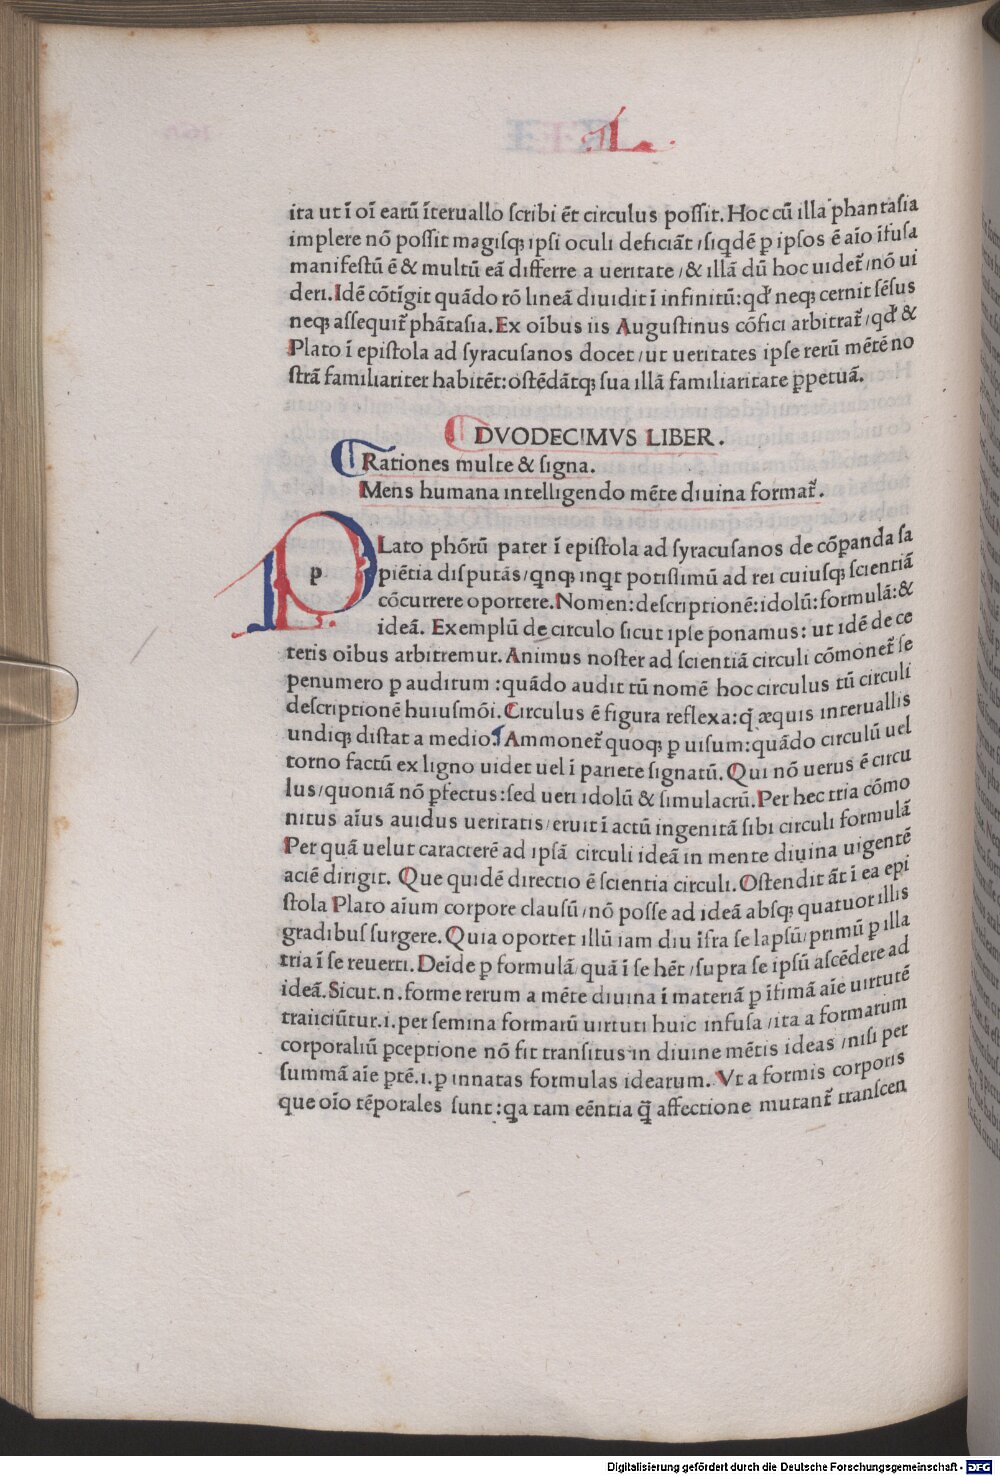 L
ita ut ī oī earū īteruallo ſcribi ēt circulus poſſit. Hoc cū illa phantaſia
implere nō poſſit magiſq; ipſi oculi deficiāt / ſiqdē ꝑ ipſos ē aīo īfuſa
manifeſtū ē & multū eā differre a ueritate / & illā dū hoc uidet᷑ / nō ui
deri. Idē cōtīgit quādo rō lineā diuidit ī infinitū: qd' neq; cernit ſēſus
neq; aſſequit᷑ phātaſia. Ex oībus iis Auguſtinus cōfici arbitrat᷑ / qd' &
Plato ī epiſtola ad ſyracuſanos docet / ut ueritates ipſe rerū mētē no
ſtrā familiariter habitēt: oſtēdātq; ſua illā familiaritate ꝑpetuā.
DVODECIMVS LIBER.
Rationes multe & ſigna.
Mens humana intelligendo mēte diuina format᷑.
p
PLato phōrū pater ī epiſtola ad ſyracuſanos de cōꝑanda ſa
piētia diſputās / qnq; inqt potiſſimū ad rei cuiuſq; ſcientiā
cōcurrere oportere. Nomen: deſcriptionē: idolū: formulā: &
ideā. Exemplū de circulo ſicut ipſe ponamus: ut idē de ce
teris oībus arbitremur. Animus noſter ad ſcientiā circuli cōmonet᷑ ſe
penumero ꝑ auditum: quādo audit tū nomē hoc circulus tū circuli
deſcriptionē huiuſmōi. Circulus ē figura reflexa: q̄ æquis interuallis
undiq; diſtat a medio. Ammonet᷑ quoq; ꝑ uiſum: quādo circulū uel
torno factū ex ligno uidet uel ī pariete ſignatū. Qui nō uerus ē circu
lus / quoniā nō ꝑfectus: ſed ueri idolū & ſimulacrū. Per hec tria cōmo
nitus aīus auidus ueritatis / eruit ī actū ingenitā ſibi circuli formulā
Per quā uelut caracterē ad ipſā circuli ideā in mente diuina uigentē
aciē dirigit. Que quidē directio ē ſcientia circuli. Oſtendit āt ī ea epi
ſtola Plato aīum corpore clauſū / nō poſſe ad ideā abſq; quatuor illis
gradibuſ ſurgere. Quia oportet illū iam diu īfra ſe lapſū / primū ꝑ illa
tria ī ſe reuerti. Deīde ꝑ formulā / quā ī ſe hēt / ſupra ſe ipſū aſcēdere ad
ideā. Sicut .n. forme rerum a mēte diuina ī materiā ꝑ īfimā aīe uirtutē
traiiciūtur .i. per ſemina formarū uirtuti huic infuſa / ita a formarum
corporaliū ꝑceptione nō fit tranſitus in diuine mētis ideas / niſi per
ſummā aīe ꝑtē .i. ꝑ innatas formulas idearum. Vt a formis corporis
que oīo tēporales ſunt: qa tam eēntia q̄ affectione mutant᷑ tranſcen
Digitalisierung gefördert durch die Deutsche Forschungsgemeinschaft - DFG